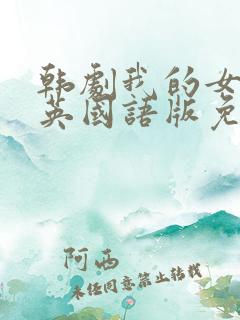 韩劇我的女
英國語版免
阿西
未任同意禁止转载